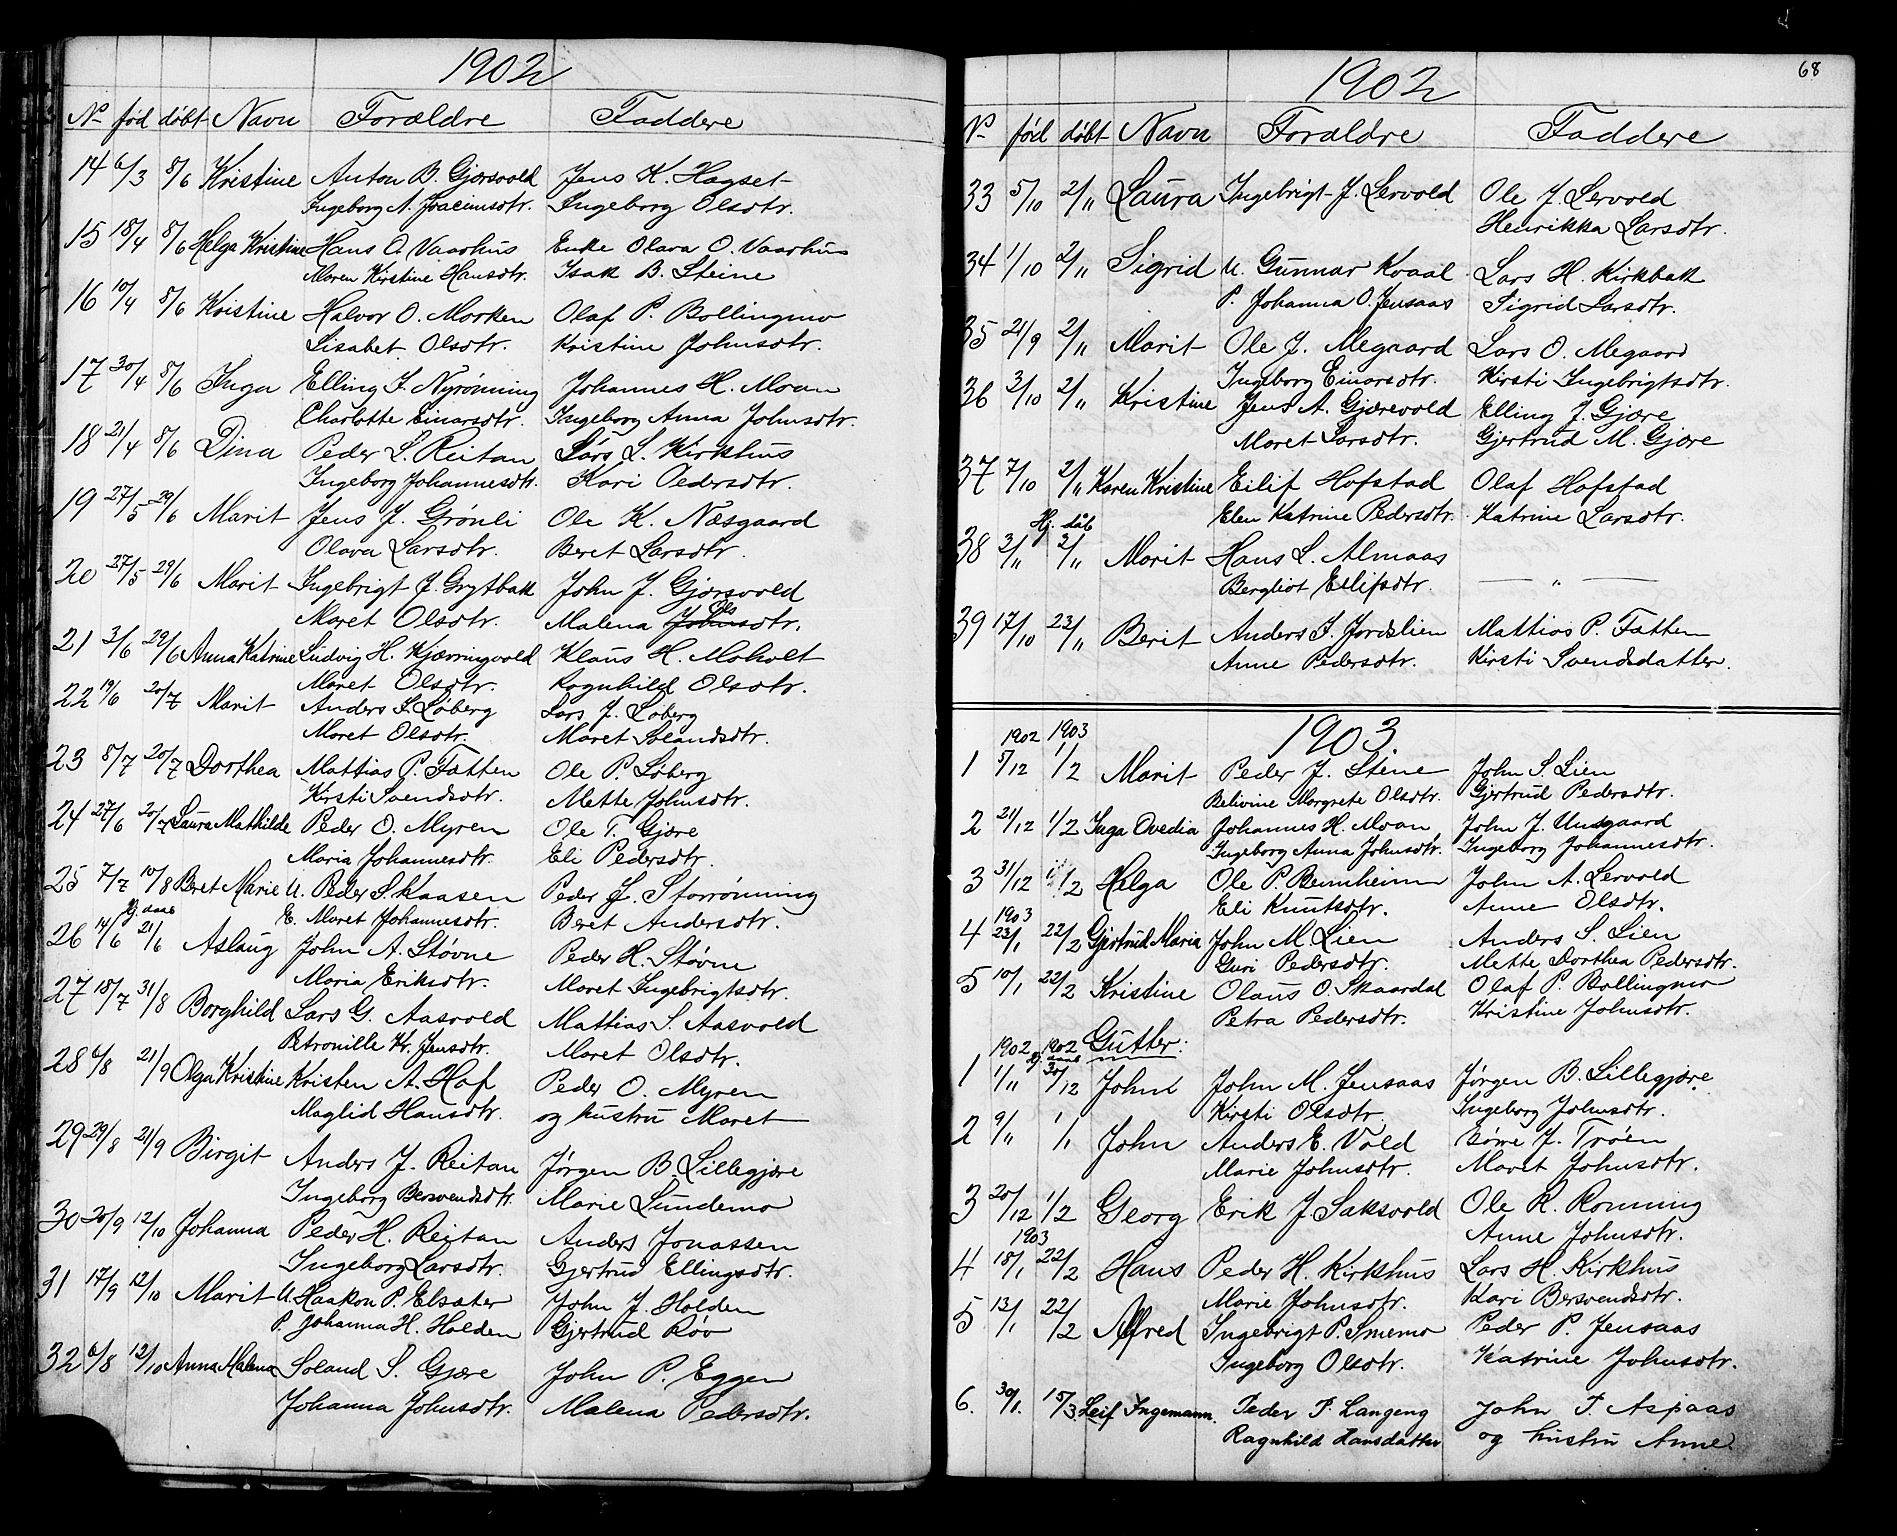 1902
No født døbt Navn Forældre Faddere
14 6/3 8/6 Kristine Anton B. Gjørsvold Jens K. Hagset
Ingeborg A. Joacimsdtr. Ingeborg Olsdtr.
15 18/4 8/6 Helga Kristine Hans O. Vaarhus Enke Olava O. Vaarhus
Maren Kirstine Hansdtr. Isak B. Steine
16 10/4 8/6 Kristine Halvor O. Morken Olaf P. Bollingmo
Lisabet Olsdtr. Kristine Johnsdtr.
17 30/4 8/6 Inga Elling J. Nyrønning Johannes H. Moan
Charlotte Einarsdtr. Ingeborg Anna Johnsdtr.
18 21/4 8/6 Dina Peder L. Reitan Lars L. Kirkhus
Ingeborg Johannesdtr. Kari Pedersdtr.
19 27/5 29/6 Marit Jens J. Grønli Ole K. Næsgaard
Olava Larsdtr. Beret Larsdtr.
20 27/5 29/6 Marit Ingebrigt J. Grytbak John J. Gjørsvold
Maret Olsdtr. Malena Johnsdtr. Ols
21 3/6 29/6 Anna Katrine Ludvig H. Kjærringvold Klaus H. Moholt
Maret Olsdtr. Ragnhild Olsdtr.
22 19/6 20/7 Marit Anders L. Løberg Lars J. Løberg
Maret Olsdtr. Maret Solandsdtr.
23 8/7 20/7 Dorthea Mattias P. Tatten Ole P. Løberg
Kirsti Svendsdtr. Mette Johnsdtr.
24 27/6 20/7 Laura Mathilde Peder O. Myren Ole T. Gjøre
Maria Johannesdtr. Eli Pedersdtr.
25 7/7 10/8 Beret Marie U. Peder S. Kaasen Peder J. Storrønning
E. Maret Johannesdtr. Beret Andersdtr.
Hj. daab
26 14/6 21/6 Aslaug John A. Støvne Peder H. Støvne
Maria Eriksdtr. Maret Ingebrigtsdtr.
27 18/7 31/8 Borghild Lars G. Aasvold Mattias S. Aasvold
Petronille Kr. Jensdtr. Maret Olsdtr.
28 6/8 21/9 Olga Kristine Kristen A. Hof Peder O. Myren
Maglid Hansdtr. og hustru Maret
29 29/8 21/9 Birgit Anders J. Reitan Jørgen B. Lillegjøre
Ingeborg Bersvendsdtr. Marie Sundemo
30 20/9 12/10 Johanna Peder H. Reitan Anders Jonassen
Ingeborg Larsdtr. Gjertrud Ellingsdtr.
31 17/9 12/10 Marit U. Haakon P. Elsæter John J. Holden
P. Johanna H. Holden Gjertrud Røv
32 6/8 12/10 Anna Malena Soland S. Gjøre John P. Eggen
Johanna Johnsdtr. Malena Pedersdtr.
68
1902
No født døbt Navn Forældre Faddere
33 5/10 2/11 Laura Ingebrigt J. Lervold Ole J. Lervold
Henrikka Larsdtr.
34 1/10 2/11 Sigrid U. Gunnar Kvaal Lars H. Kirkbak
P. Johanna O. Jensaas Sigrid Larsdtr.
35 21/9 2/11 Marit Ole J. Megaard Lars O. Megaard
Ingeborg Einarsdtr. Kirsti Ingebrigtsdtr.
36 3/10 2/11 Kristine Jens A. Gjørevold Elling J. Gjøre
Maret Larsdtr. Gjertrud M. Gjøre
37 7/10 2/11 Karen Kristine Eilif Hofstad Olaf Hofstad
Elen Katrine Pedersdtr. Katrine Larsdtr.
Hj. dåb
38 2/11 2/11 Marit Hans L. Almaas
Bergliot Ellifsdtr. — " —
39 17/10 23/11 Berit Anders J. Jordslien Mattias P. Tatten
Anne Pedersdtr. Kirsti Svendsdatter.
1903
1902 1903
1 5/12 1/2 Marit Peder J. Stene John S. Lien
Belivine Margrete Olsdtr. Gjertrud Pedersdtr.
2 21/12 1/2 Inga Ovedia Johannes H. Moan John J. Unsgaard
Ingeborg Anna Johnsdtr. Ingeborg Johannesdtr.
3 31/12 1/2 Helga Ole P. Rennheimn John A. Lervold
Eli Knutsdtr. Anne Olsdtr.
1903
4 23/1 22/2 Gjertrud Maria John M. Lien Anders S. Lien
Guri Pedersdtr. Mette Dorthea Pedersdtr.
5 10/1 22/2 Kristine Olaus O. Skaardal Olaf P. Bollingmo
Petra Pedersdtr. Kristine Johnsdtr.
Gutter:
1902 1902
Hj. daab
1 1/11 30/12 John John M. Jensaas Jørgen B. Lillegjøre
Kirsti Olsdtr. Ingeborg Johnsdtr.
2 9/11 1/1 John Anders E. Vold Børre J. Trøen
Marie Johnsdtr. Maret Johnsdtr.
3 20/12 1/2 Georg Erik J. Saksvold Ole R. Ronning
Anne Johnsdtr.
1903
4 18/1 22/2 Hans Peder H. Kirkhus Lars H. Kirkhus
Marie Johnsdtr. Kari Bersvendsdtr.
5 13/1 22/2 Alfred Ingebrigt P. Smemo Peder P. Jensaas
Ingeborg Olsdtr. Katrine Johnsdtr.
6. 30/1. 15/3 Leif Ingemann. Peder P. Langeng John T. Aspaas
Ragnhild Hansdatter og hustru Anne